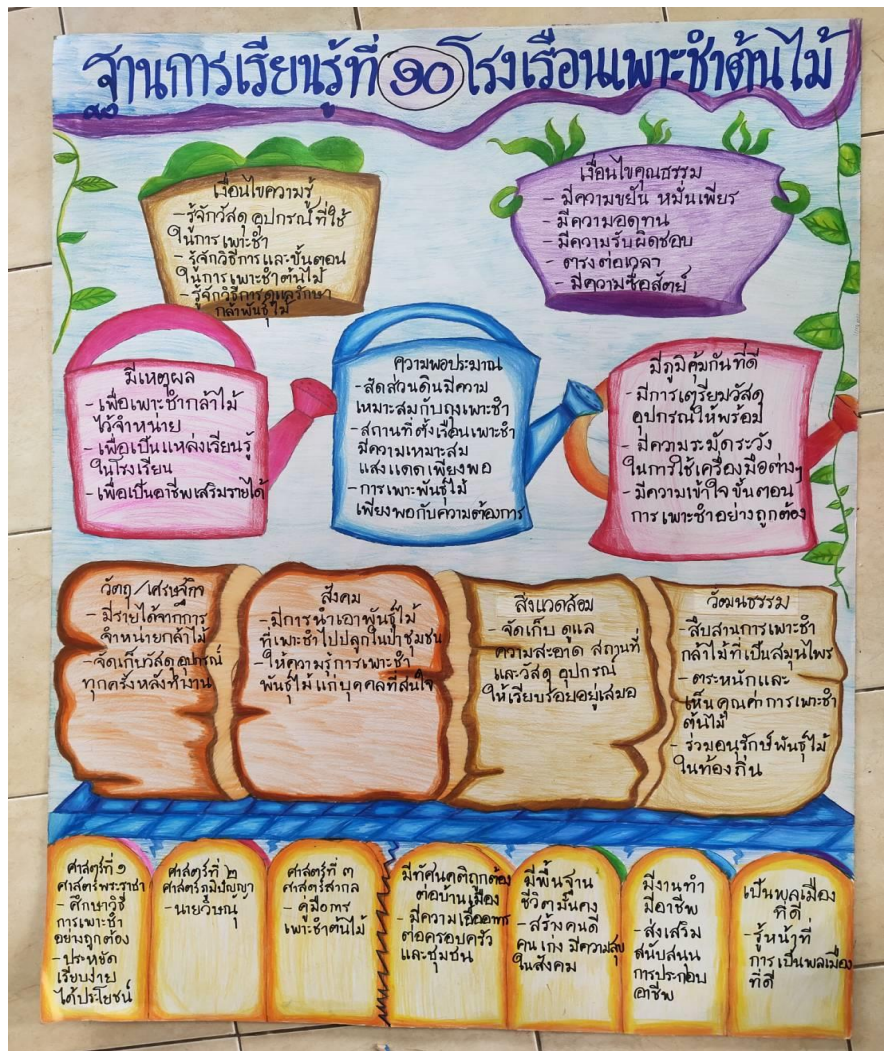 ฐานการเรียนรู้ที่ ๑๐ โรงเรือนเพาะชำต้นไม้
เงื่อนไขความรู้
- รู้จักวัสดุ อุปกรณ์ ที่ใช้
ในการเพาะชำ
- รู้จักวิธีการและขั้นตอน
ในการเพาะชำต้นไม้
- รู้จักวิธีการดูแลรักษา
กล้าพันธุ์ไม้
เงื่อนไขคุณธรรม
- มีความขยัน หมั่นเพียร
- มีความอดทน
- มีความรับผิดชอบ
- ตรงต่อเวลา
- มีความซื่อสัตย์
มีเหตุผล
- เพื่อเพาะชำกล้าไม้
ไว้จำหน่าย
- เพื่อเป็นแหล่งเรียนรู้
ในโรงเรียน
- เพื่อเป็นอาชีพเสริมรายได้
ความพอประมาณ
- สัดส่วนดินมีความ
เหมาะสมกับถุงเพาะชำ
- สถานที่ตั้งเรือนเพาะชำ
มีความเหมาะสม
แสงแดดเพียงพอ
- การเพาะพันธุ์ไม้
เพียงพอกับความต้องการ
มีภูมิคุ้มกันที่ดี
- มีการเตรียมวัสดุ
อุปกรณ์ให้พร้อม
- มีความระมัดระวัง
ในการใช้เครื่องมือต่างๆ
- มีความเข้าใจขั้นตอน
การเพาะชำอย่างถูกต้อง
วัตถุ/เศรษฐกิจ
- มีรายได้จากการ
จำหน่ายกล้าไม้
- จัดเก็บวัสดุอุปกรณ์
ทุกครั้งหลังทำงาน
สังคม
- มีการนำเอาพันธุ์ไม้
ที่เพาะชำไปปลูกในป่าชุมชน
- ให้ความรู้การเพาะชำ
พันธุ์ไม้แก่บุคคลที่สนใจ
สิ่งแวดล้อม
- จัดเก็บ ดูแล
ความสะอาด สถานที่
และวัสดุ อุปกรณ์
ให้เรียบร้อยอยู่เสมอ
วัฒนธรรม
- สืบสานการเพาะชำ
กล้าไม้ที่เป็นสมุนไพร
- ตระหนักและ
เห็นคุณค่าการเพาะชำ
ต้นไม้
- ร่วมอนุรักษ์พันธุ์ไม้
ในท้องถิ่น
ศาสตร์ที่ ๑
ศาสตร์พระราชา
- ศึกษาวิธี
การเพาะชำ
อย่างถูกต้อง
- ประหยัด
เรียบง่าย
ได้ประโยชน์
ศาสตร์ที่ ๒
ศาสตร์ภูมิปัญญา
- นายวิษณุ
ศาสตร์ที่ ๓
ศาสตร์สากล
- คู่มือการ
เพาะชำต้นไม้
มีทัศนคติถูกต้อง
ต่อบ้านเมือง
- มีความเอื้ออาทร
ต่อครอบครัว
และชุมชน
มีพื้นฐาน
ชีวิตมั่นคง
- สร้างคนดี
คนเก่ง มีความสุข
ในสังคม
มีงานทำ
มีอาชีพ
- ส่งเสริม
สนับสนุน
การประกอบ
อาชีพ
เป็นพลเมือง
ที่ดี
- รู้หน้าที่
การเป็นพลเมือง
ที่ดี